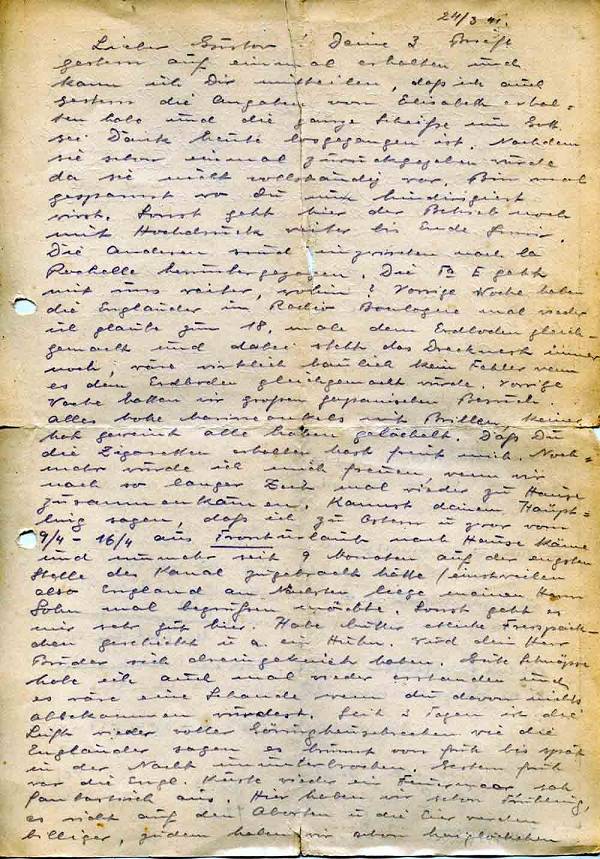 24/3 41.
Lieber Gustav! Deine 3 Briefe
gestern auf einmal erhalten und
kann ich Dir mitteilen, daß ich auch
gestern die Angaben von Elisabeth erhal-
ten habe und die ganze Scheiße nun Gott
sei Dank heute losgegangen ist. Nachdem
sie schon einmal zurückgegeben wurde
da sie nicht vollständig war. Bin mal
gespannt wo Du nun hindirigiert
wirst. Sonst geht hier der Betrieb noch
mit Hochdruck weiter bis Ende
Die Anderen sind inzwischen nach La
Rochelle heruntergezogen. Die geht
mit uns weiter, wohin? Vorrige Woche haben
die Engländer im Radio Boulogne mal wieder
ich glaube zum 18. male dem Erdboden gleich-
gemacht und dabei steht das Drecknest immer
noch, wäre wirklich baulich kein Fehler wenn
es dem Erdboden gleichgemacht würde. Vorrige
Woche hatten wir großen japanischen Besuch.
alles hohe mit Brillen, keiner
hat geweint alle haben gelächelt. Daß Du
die Zigaretten erhalten hast freut mich. Noch-
mehr würde ich mich freuen, wenn wir
nach so langer Zeit mal wieder zu Hause
zusammenkämen. Kannst deinem Häupt-
ling sagen, daß ich zu Ostern u zwar vom
9/4 - 16/4 aus Fronturlaub nach Hause käme
und nunmehr seit 9 Monaten auf der engsten
Stelle des Kanal zugebracht hätte (einstweilen
also England am Nächsten liege meinen Herrn
Sohn mal begrüßen möchte. Sonst geht es
mir sehr gut hier. Habe Mutter etliche Fresspäck-
chen geschickt u a. ein Huhn. Wird dein Herr
Bruder sich dreingekniet haben. Gute Schnäpse
habe ich auch mal wieder erstanden und
es wäre eine Schande wenn du davon nichts
abbekommen würdest. Seit 2 Tagen ist die
Luft wieder voller Göringheuschrecken wie die
Engländer sagen es brummt von früh bis spät
in der Nacht ununterbrochen. Gestern früh
war die Engl. Küste wieder ein Feuermeer sah
fantastisch aus. Hier haben wir schon Frühling,
es riecht auf den Aborten u die Eier werden
billiger, zudem haben wir schon Maiglöckchen